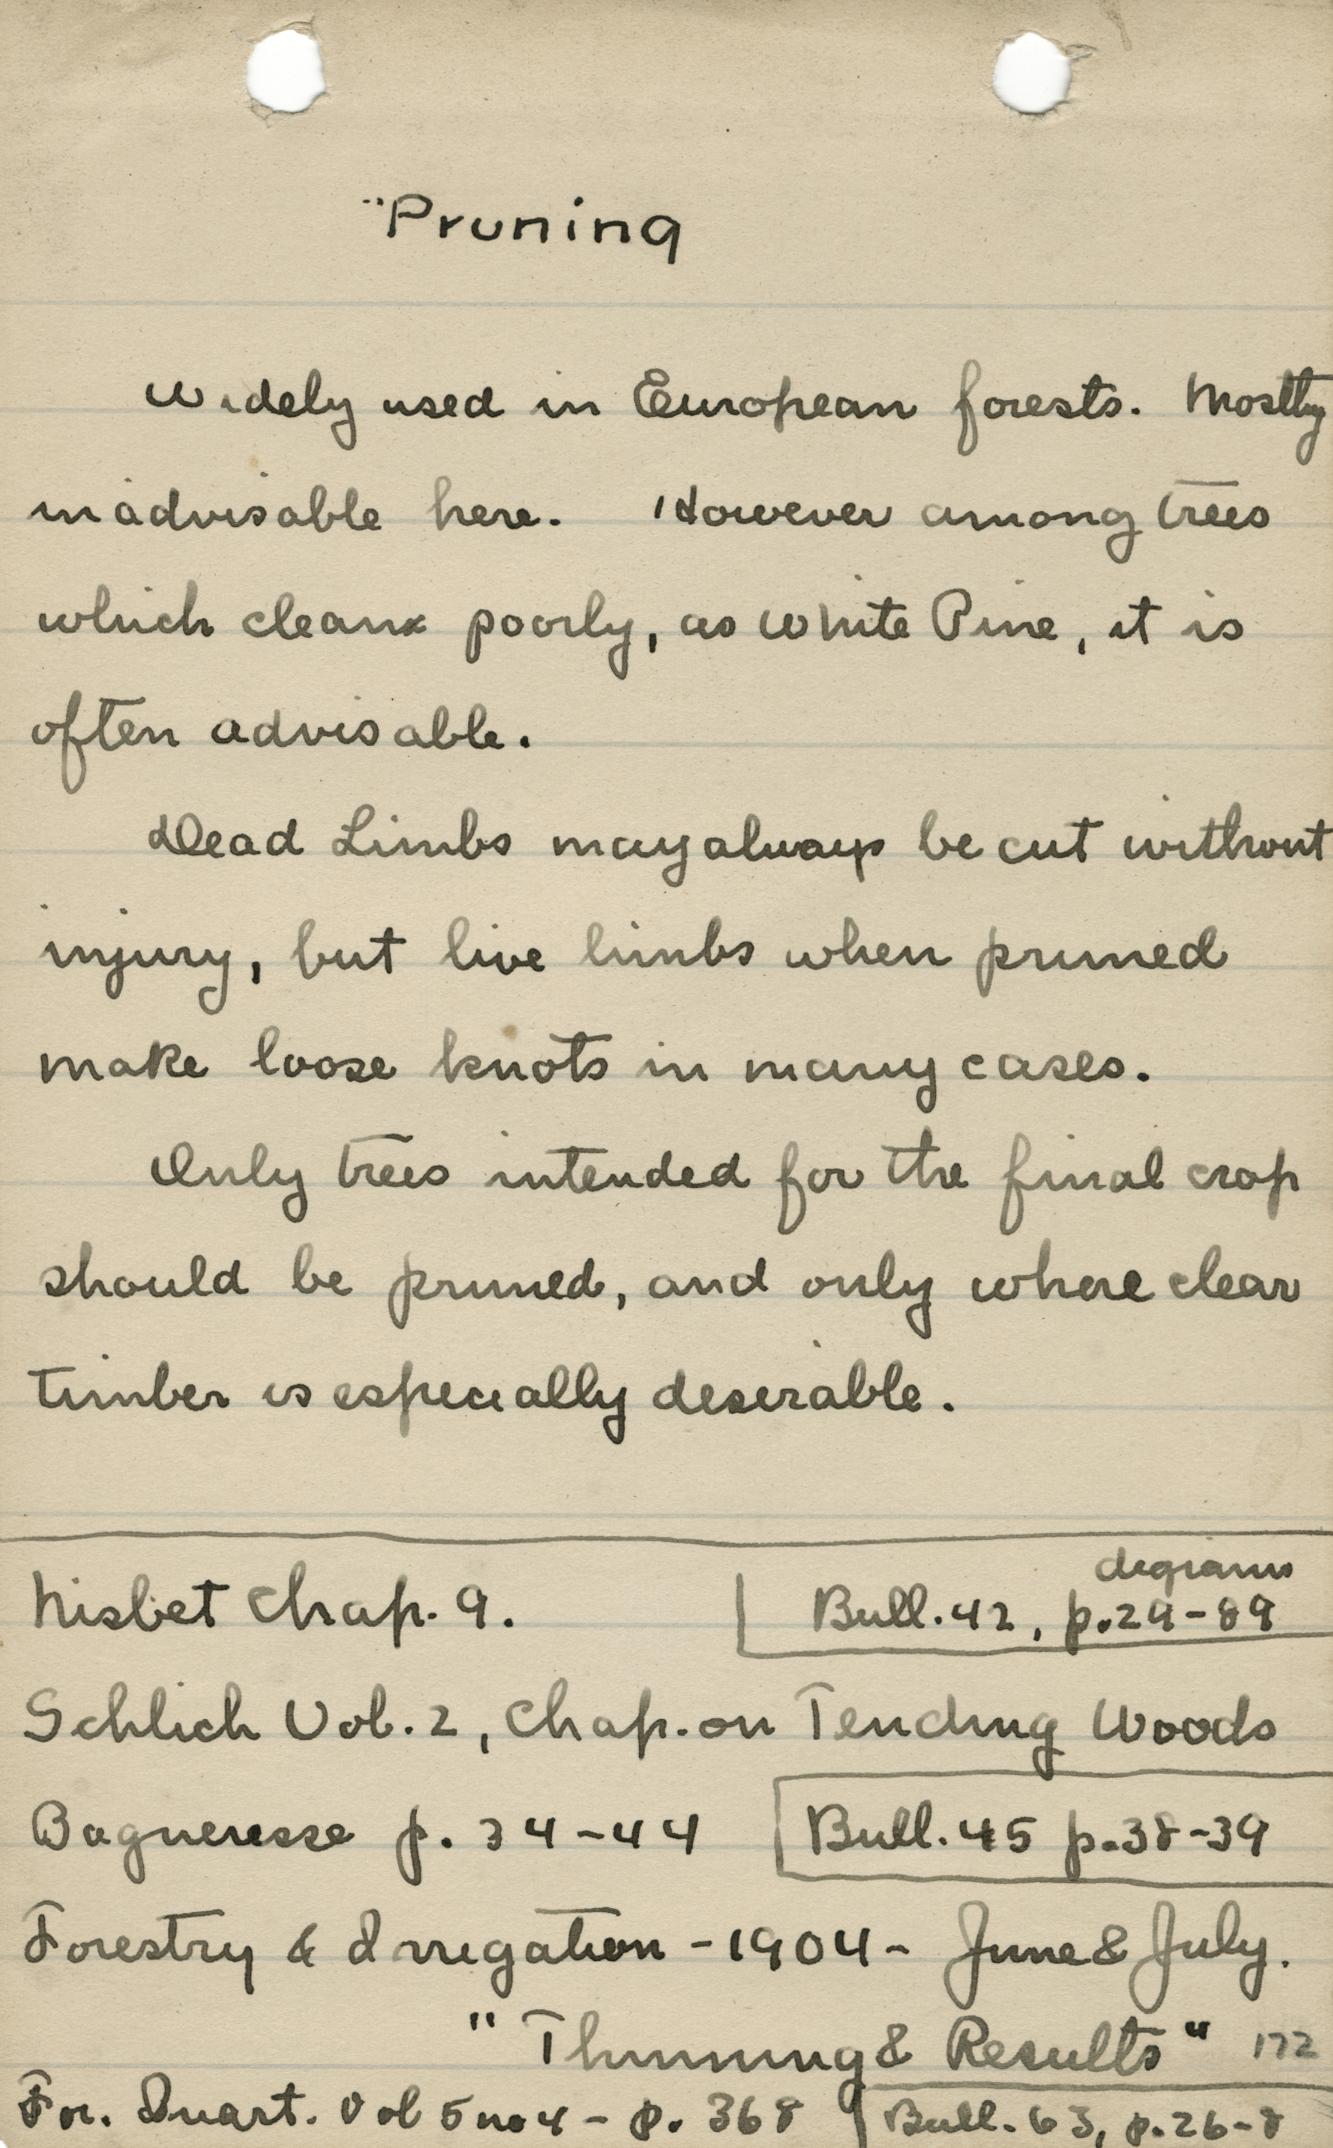 "Pruning
Widely used in European forests. Mostly
inadvisable here. However among trees
which clean poorly, as White Pine, it is
often advisable.
Dead Limbs may always be cut without
injury, but live limbs when pruned
make loose knots in many cases.
Only trees intended for the final crop
should be pruned, and only where clear
timber is especially deserable.
Nisbet Chap. 9.
degrams
Bull. 42, p. 29-89
Schlich Vol. 2, Chap. on Tending Woods
Bagneresse p. 34-44
Bull. 45 p. 38-39
Forestry & Irrigation - 1904 - June & July.
"Thinning & Results" 172
For. Quart. Vol 5 no 4 - p. 368
Bull. 63, p. 26-8